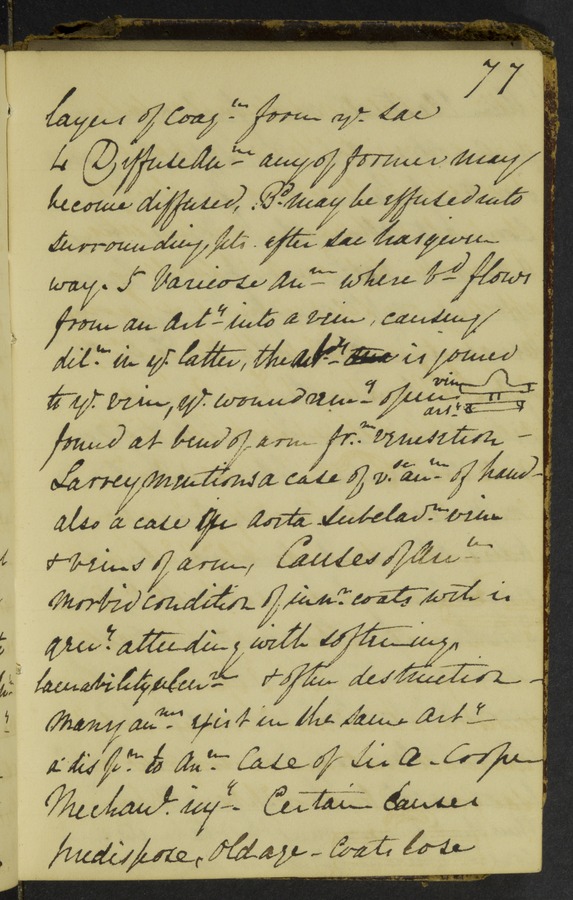 77
layers of coag.m form ye sac
4 Diffuse Anm any of former may
become diffused, Bd may be effused into
surrounding pts. after sac has given
way. 5 Varicose Anm where bd flows
from an arty into a vein, causing
diln in ye latter, the arty is joined
to ye vein, ye wound remg open vein
arty
found at bend of arm frm venesection –
Larrey mentions a case of vse anm of hand –
also a case aorta subclavn vein
& veins of arm, Causes of Anm
morbid condition of innr coats wch is
genly attending with softening,
lacerability ulcern & often destruction –
many anms exist in the same arty
a disp.n to Anm Case of Sir A. Cooper
Mechanl injy. Certain causes
predispose, Old age – Coats lose